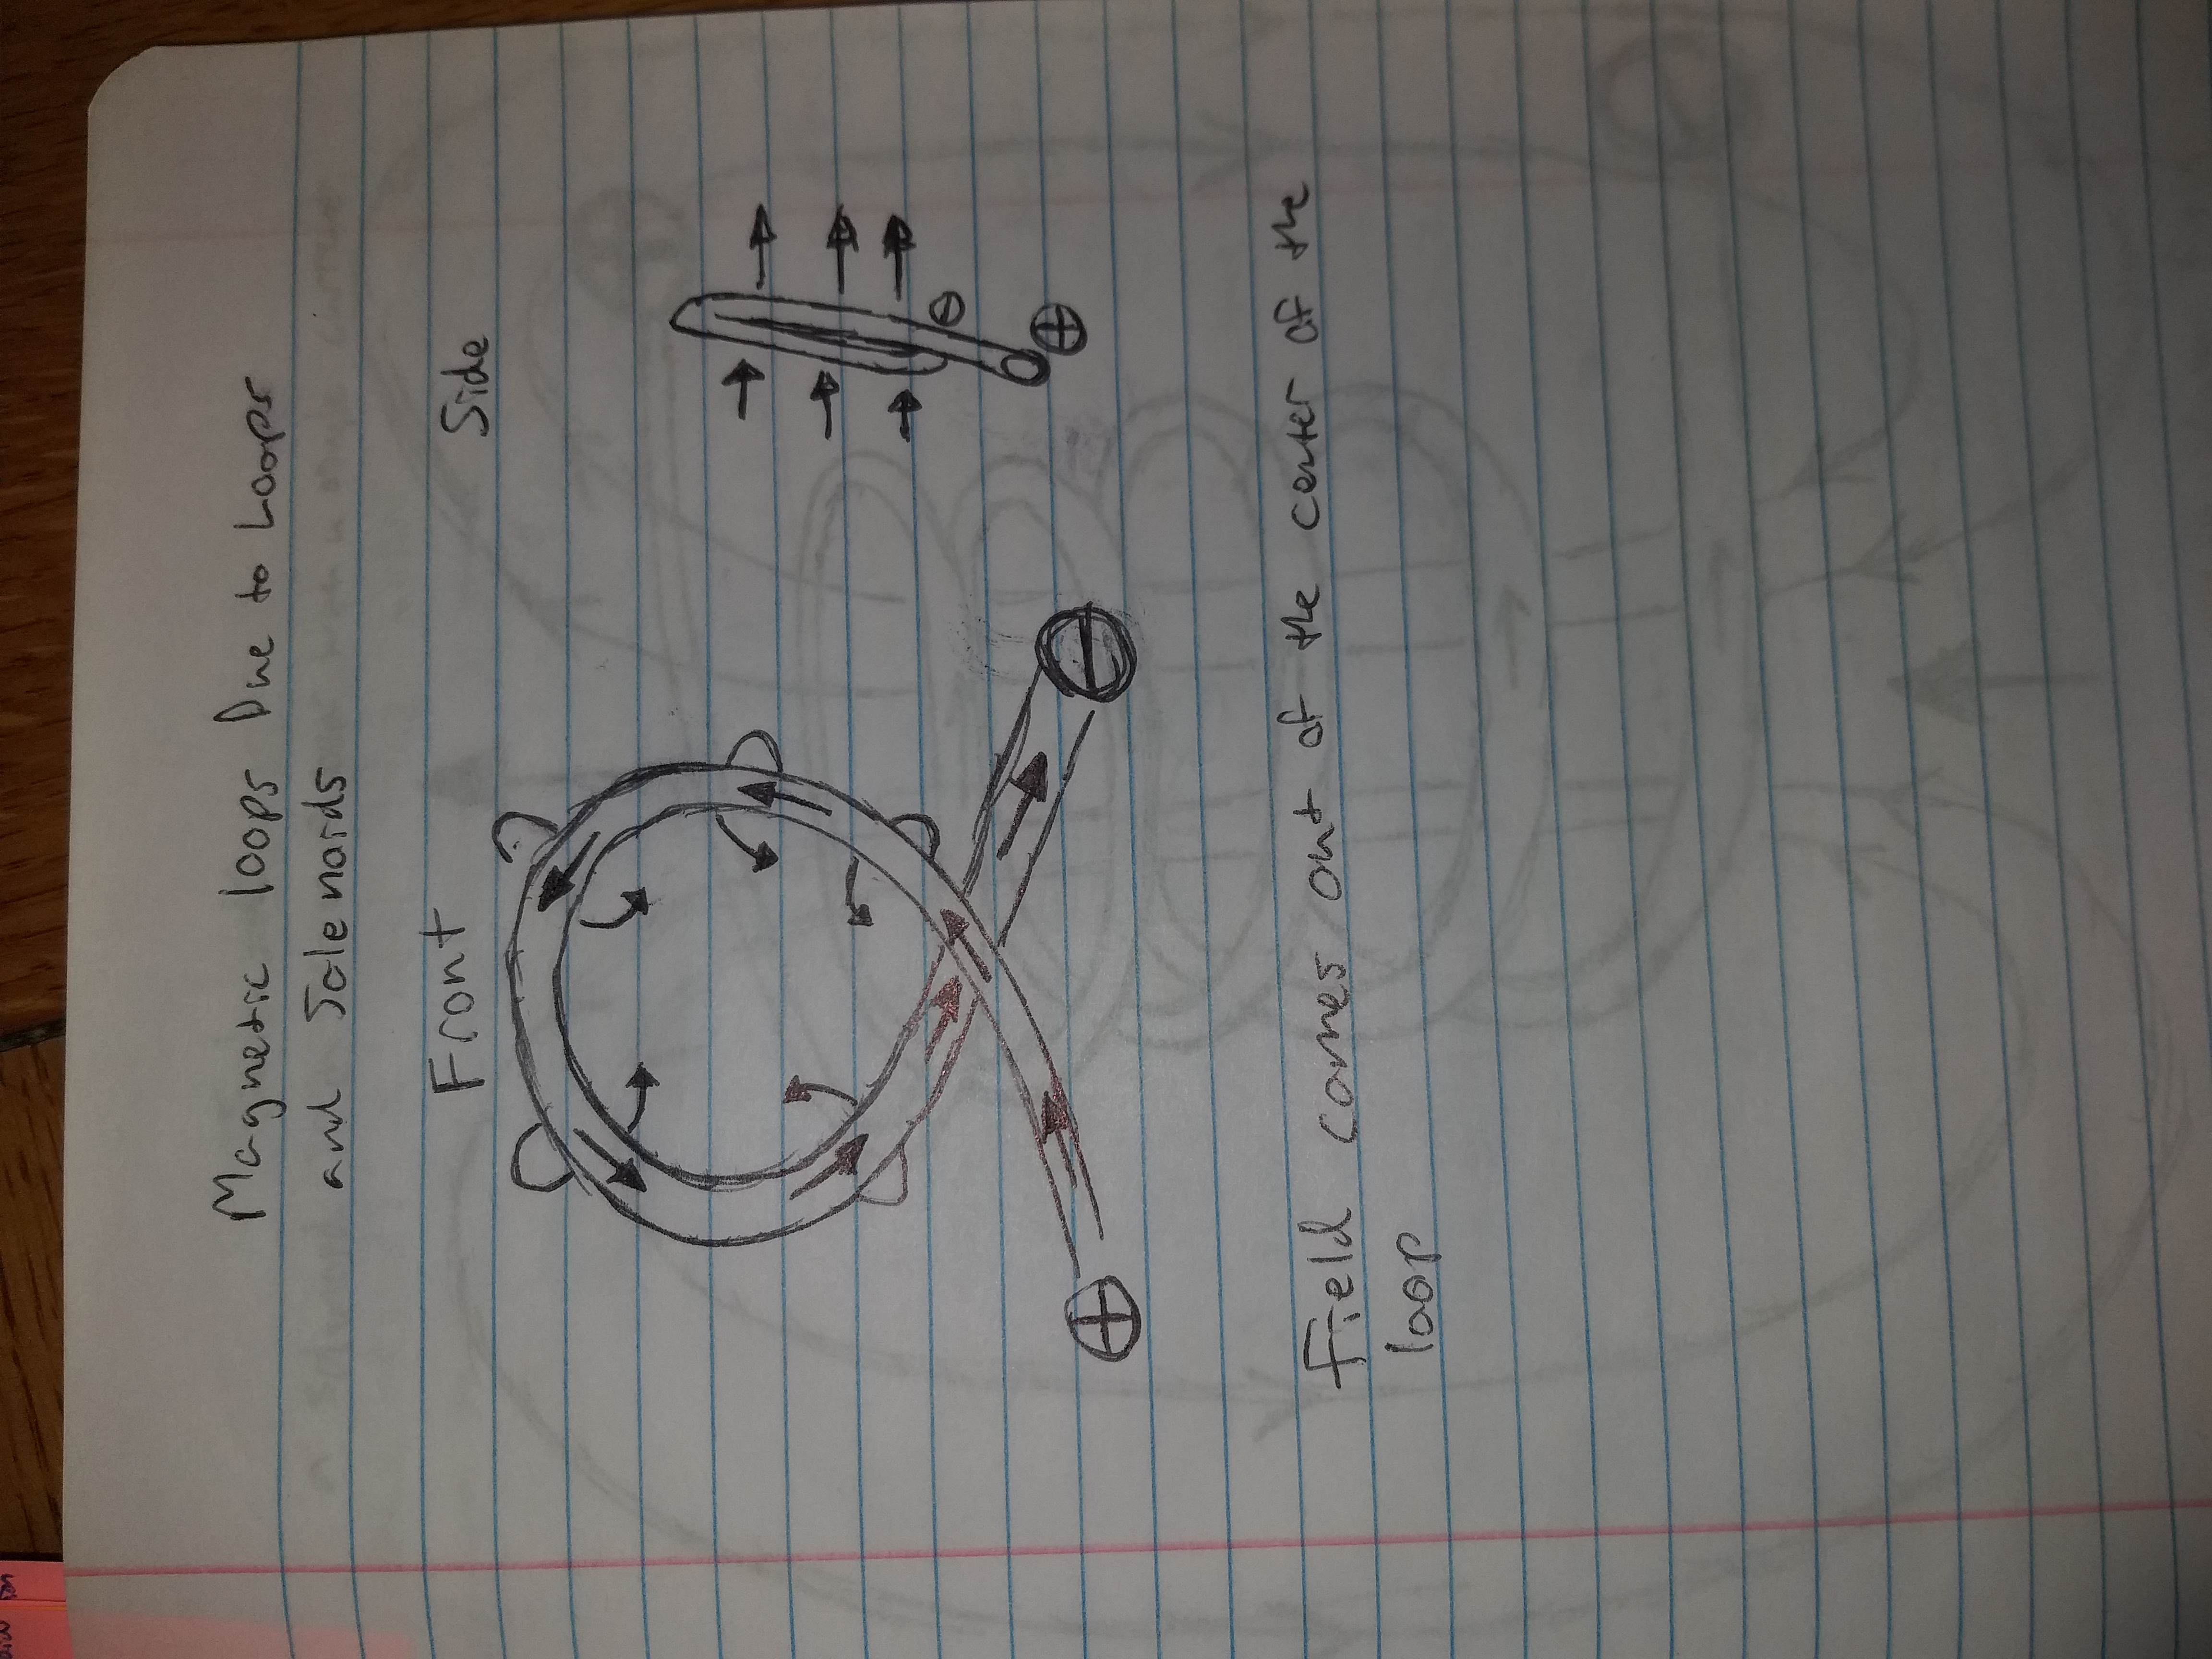 Magnetic loops Due to Loops
and Solenoids
Front
Side
+
-
-
+
Field comes out of the center of the
loop